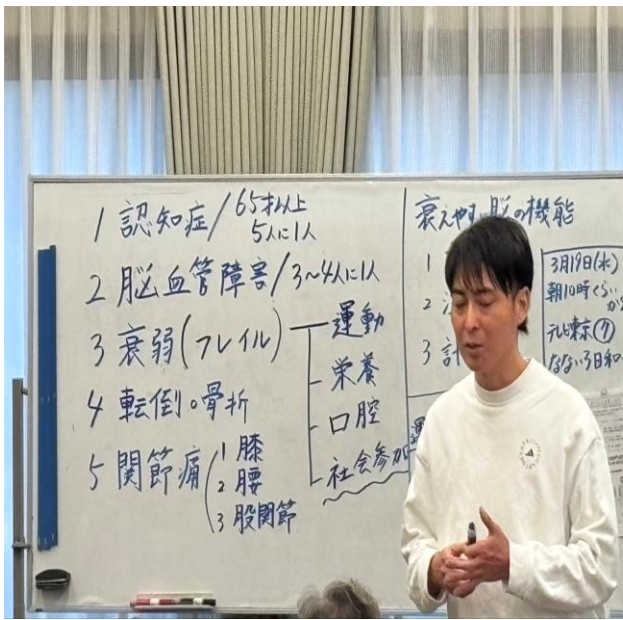 1 認知症/65才以上
5人に1人
2 脳血管障害/3~4人に1人
3 衰弱(フレイル)
運動
栄養
口腔
社会参加
4 転倒。骨折
5 関節痛
1 膝
2 腰
3 股関節
衰えやすい脳の機能
1
2
3 計
3月19日(水)
朝10時くらい
テレビ東京⑦
なないろ日和